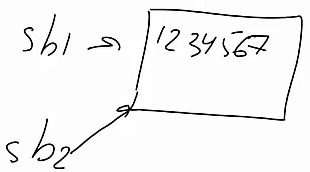 sb1 → 1234567
sb2